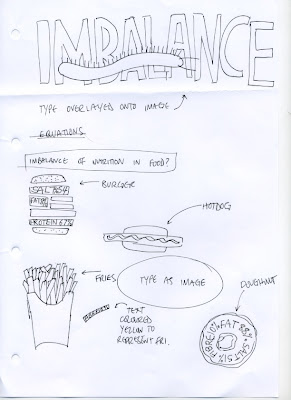 IMBALANCE
TYPE OVERLAYED ONTO IMAGE
EQUATIONS
IMBALANCE OF NUTRITION IN FOOD?
BURGER
SALT
FAT
PROTEIN 67%
HOTDOG
FRIES
TYPE AS IMAGE
DOUGHNUT
TEXT
COLOURED
YELLOW TO
REPRESENT FRI.
FIBRE 10% FAT 88% SALT 51%